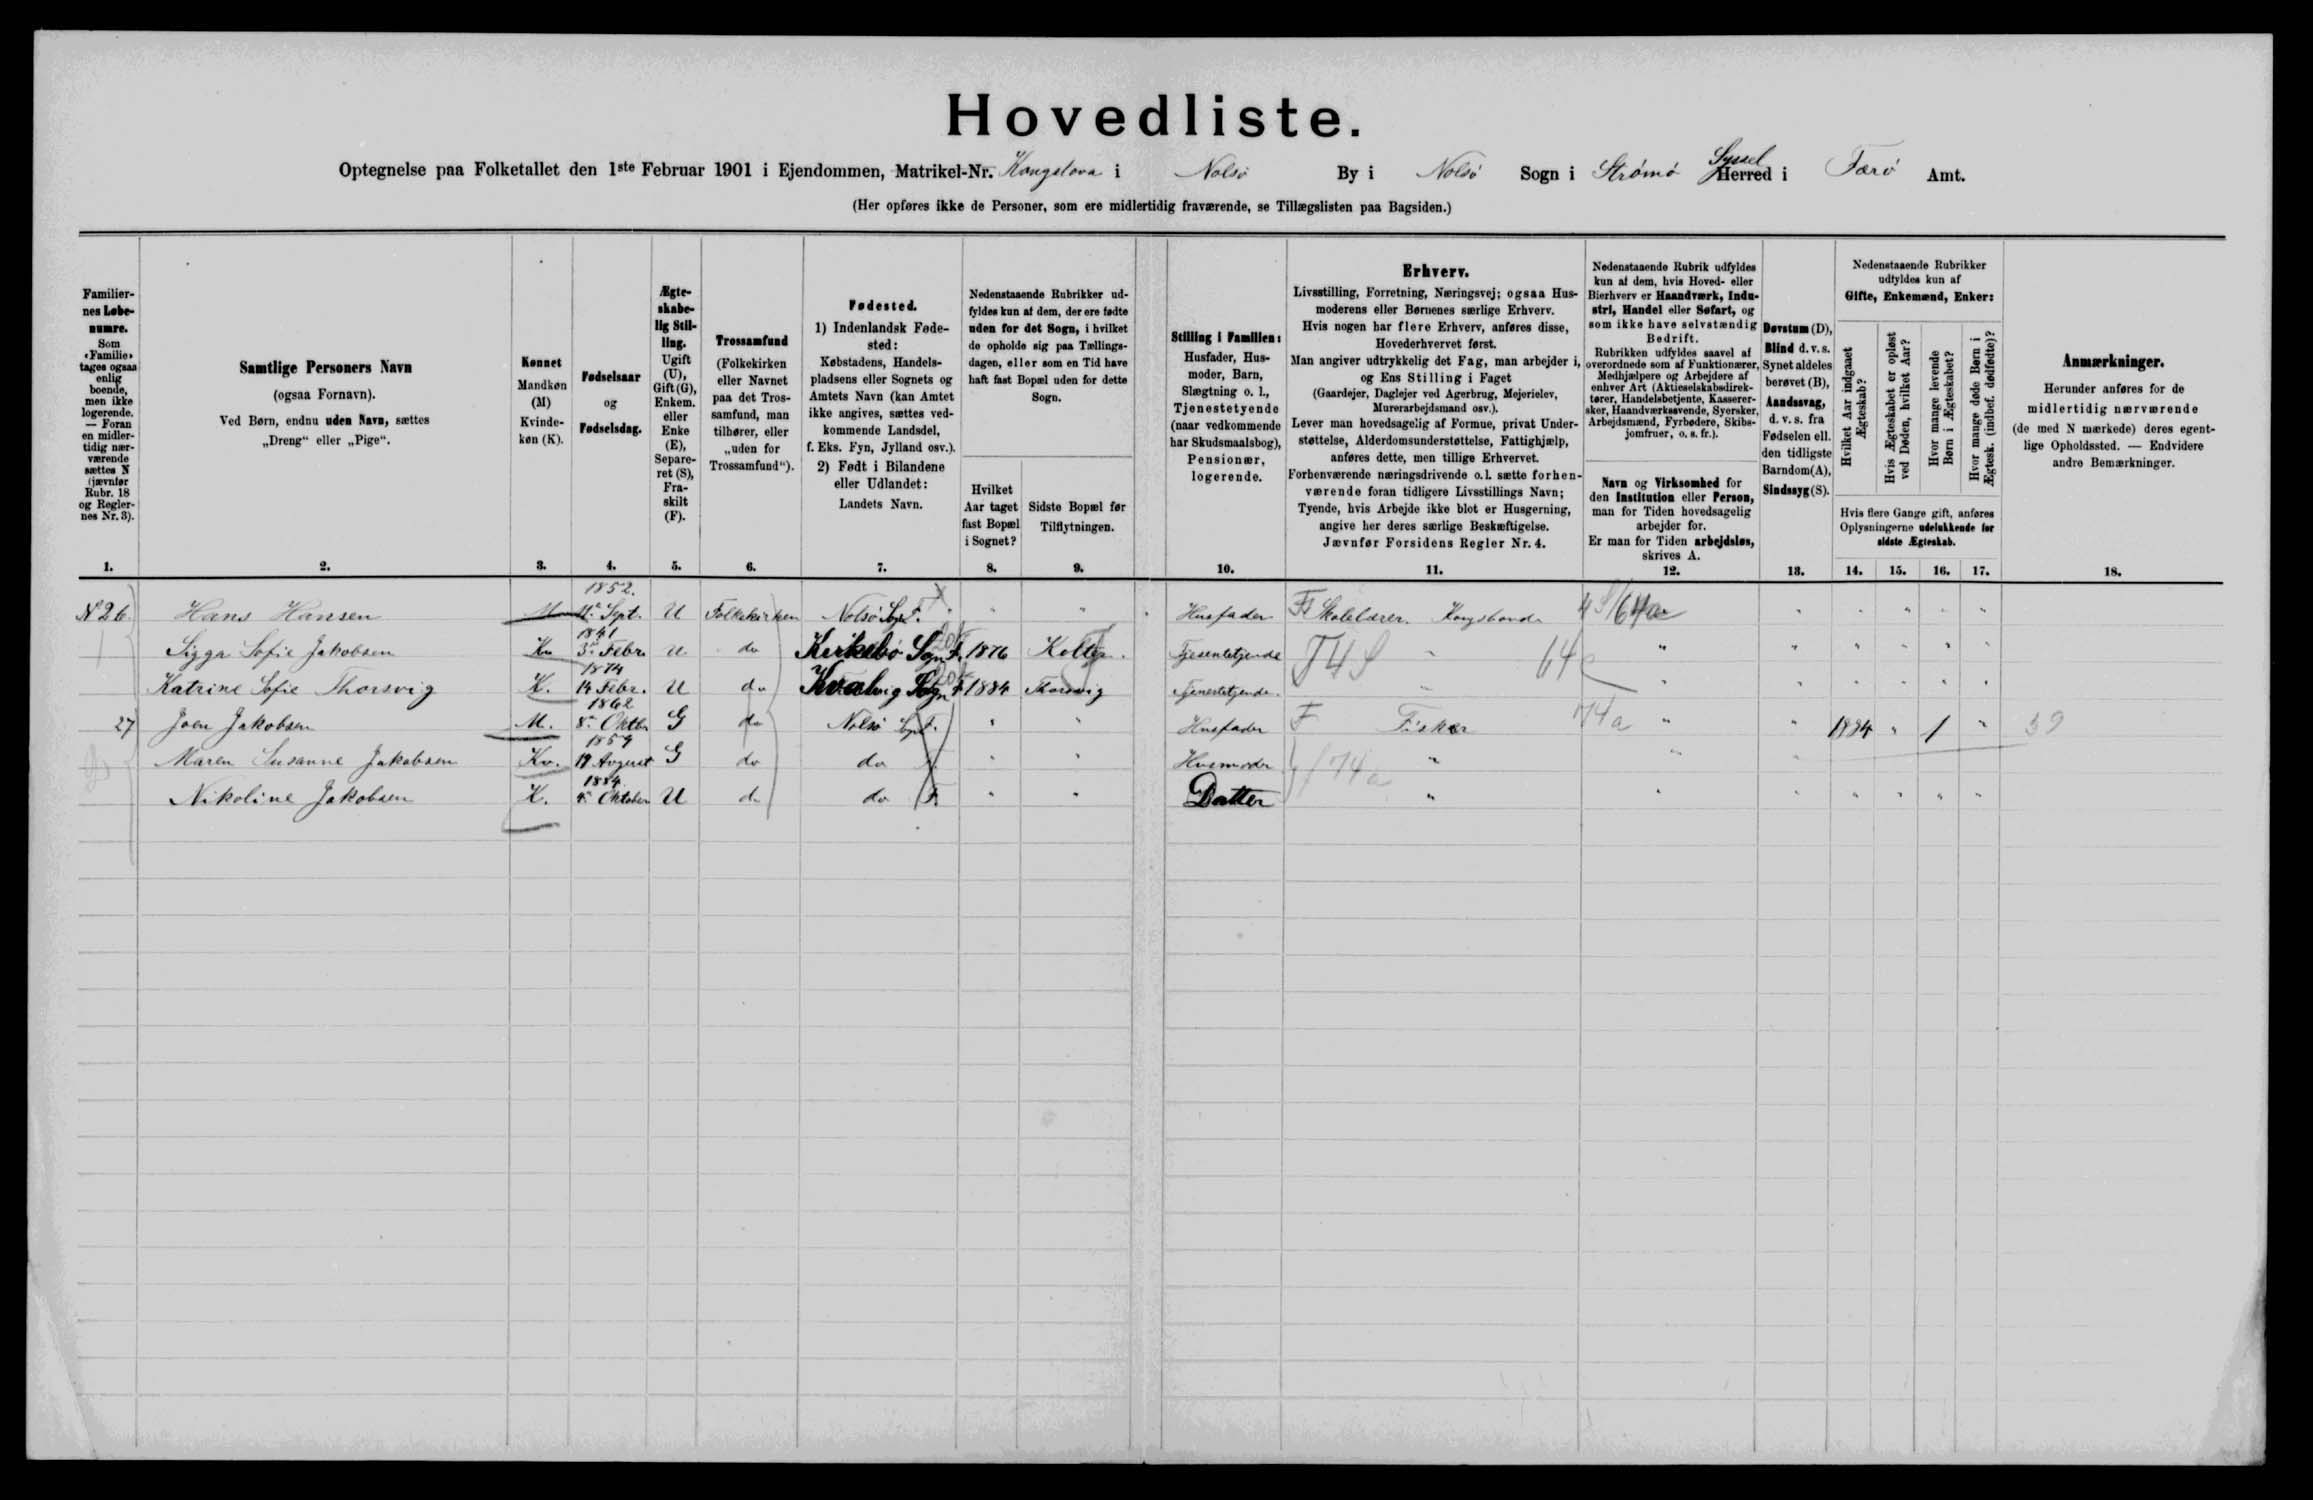 Hovedliste.
Optegnelse paa Folketallet den 1ste Februar 1901 i Ejendommen, Matrikel-Nr. Kongstova i Nolsö By i Nolsö Sogn i Strömö Syssel Herred i Færö Amt.
(Her opføres ikke de Personer, som ere midlertidig fraværende, se Tillægslisten paa Bagsiden.)
Familier-
nes Løbe-
numre.
Som
«Familie»
tages ogsaa
enlig
boende,
men ikke
logerende.
— Foran
en midler-
tidig nær-
værende
sættes N
(jævnfør
Rubr. 18
og Regler-
nes Nr. 3).
1.
Samtlige Personers Navn
(ogsaa Fornavn).
Ved Børn, endnu uden Navn, sættes
„Dreng“ eller „Pige“.
2.
Kønnet
Mandkøn
(M)
Kvinde-
køn (K).
3.
Fødselsaar
og
Fødselsdag.
4.
Ægte-
skabe-
lig Stil-
ling.
Ugift
(U),
Gift (G),
Enkem.
eller
Enke
(E),
Separe-
ret (S),
Fra-
skilt
(F).
5.
Trossamfund
(Folkekirken
eller Navnet
paa det Tros-
samfund, man
tilhører, eller
„uden for
Trossamfund“).
6.
Fødested.
1) Indenlandsk Føde-
sted:
Købstadens, Handels-
pladsens eller Sognets og
Amtets Navn (kan Amtet
ikke angives, sættes ved-
kommende Landsdel,
f. Eks. Fyn, Jylland osv.).
2) Født i Bilandene
eller Udlandet:
Landets Navn.
7.
Nedenstaaende Rubrikker ud-
fyldes kun af dem, der ere fødte
uden for det Sogn, i hvilket
de opholde sig paa Tællings-
dagen, eller som en Tid have
haft fast Bopæl uden for dette
Sogn.
Hvilket
Aar taget
fast Bopæl
i Sognet?
8.
Sidste Bopæl før
Tilflytningen.
9.
Stilling i Familien:
Husfader, Hus-
moder, Barn,
Slægtning o. l.,
Tjenestetyende
(naar vedkommende
har Skudsmaalsbog),
Pensionær,
logerende.
10.
Erhverv.
Livsstilling, Forretning, Næringsvej; ogsaa Hus-
moderens eller Børnenes særlige Erhverv.
Hvis nogen har flere Erhverv, anføres disse,
Hovederhvervet først.
Man angiver udtrykkelig det Fag, man arbejder i,
og Ens Stilling i Faget
(Gaardejer, Daglejer ved Agerbrug, Mejerielev,
Murerarbejdsmand osv.).
Lever man hovedsagelig af Formue, privat Under-
støttelse, Alderdomsunderstøttelse, Fattighjælp,
anføres dette, men tillige Erhvervet.
Forhenværende næringsdrivende o. l. sætte forhen-
værende foran tidligere Livsstillings Navn;
Tyende, hvis Arbejde ikke blot er Husgerning,
angive her deres særlige Beskæftigelse.
Jævnfør Forsidens Regler Nr. 4.
11.
Nedenstaaende Rubrik udfyldes
kun af dem, hvis Hoved- eller
Bierhverv er Haandværk, Indu-
stri, Handel eller Søfart, og
som ikke have selvstændig
Bedrift.
Rubrikken udfyldes saavel af
overordnede som af Funktionærer,
Medhjælpere og Arbejdere af
enhver Art (Aktieselskabsdirek-
tører, Handelsbetjente, Kasserer-
sker, Haandværkssvende, Syersker,
Arbejdsmænd, Fyrbødere, Skibs-
jomfruer, o. s. fr.).
Navn og Virksomhed for
den Institution eller Person,
man for Tiden hovedsagelig
arbejder for.
Er man for Tiden arbejdsløs,
skrives A.
12.
Døvstum (D),
Blind d. v. s.
Synet aldeles
berøvet (B),
Aandssvag,
d. v. s. fra
Fødselen ell.
den tidligste
Barndom (A),
Sindssyg (S).
13.
Nedenstaaende Rubrikker
udfyldes kun af
Gifte, Enkemænd, Enker:
Hvilket Aar indgaaet
Ægteskab?
Hvis Ægteskabet er opløst
ved Døden, hvilket Aar?
Hvor mange levende
Børn i Ægteskabet?
Hvor mange døde Børn i
Ægtesk. (indbef. dødfødte)?
Hvis flere Gange gift, anføres
Oplysningerne udelukkende for
sidste Ægteskab.
14. 15. 16. 17.
Anmærkninger.
Herunder anføres for de
midlertidig nærværende
(de med N mærkede) deres egent-
lige Opholdssted. — Endvidere
andre Bemærkninger.
18.
1852.
N 26. Hans Hansen Sept. U Folkekirken Nolsö Sogn F. " " Husfader Skolelærer. Kongsbonde 64a
1841
Sigga Sofie Jakobsen Kv 3. Febr. U do Kirkebö Sogn F. 1876 Kolter Tjenestetyende T4S " 64c
1874
Katrine Sofie Thorsvig K. 14 Febr. U do Kvalvig Sogn F 1884 Thorsvig Tjenestetyende "
1862
27 Joen Jakobsen M. 8. Oktbr G do Nolsö Sogn F. " " Husfader F Fisker 74a " " 1884 " 1 " 39
1859
Maren Susanne Jakobsen Kv. 19 Avgust G do do F. " " Husmoder 74a "
1884
Nikoline Jakobsen K. 4. Oktober U do do F. " " Datter "